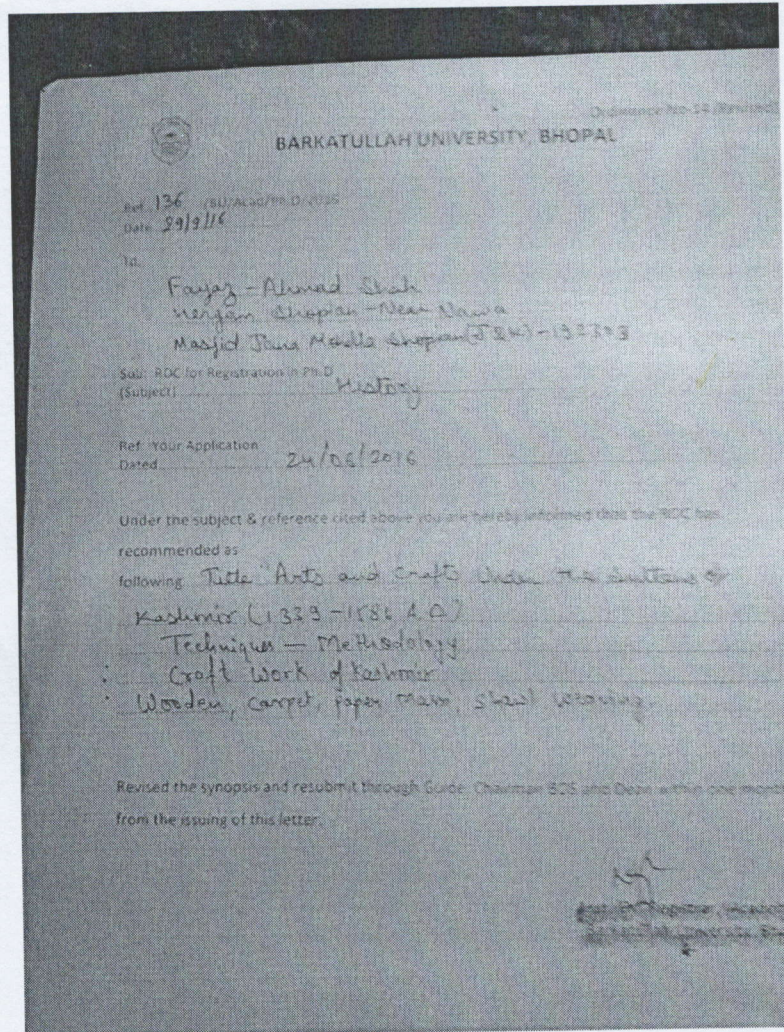 Ordinance No-14 (Revised)
BARKATULLAH UNIVERSITY, BHOPAL
Ref. 136 /BU/Acad/Ph.D/2015
Date 29/9/16
To,
Fayaz-Ahmad Shah
Shopian-Near Nawa
Masjid Mohalla Shopian (J&K)-192303
Sub: RDC for Registration in Ph.D
(Subject) History
Ref: Your Application
Dated 24/06/2016
Under the subject & reference cited above you are hereby informed that the RDC has
recommended as
following Title "Arts and Crafts Under The Sultans of
Kashmir (1339-1586 A.D)
Techniques — Methodology
: Craft Work of Kashmir
Wooden, Carpet, paper Mass, Shawl weaving.
Revised the synopsis and resubmit through Guide, Chairman BOS and Dean within one month
from the issuing of this letter.